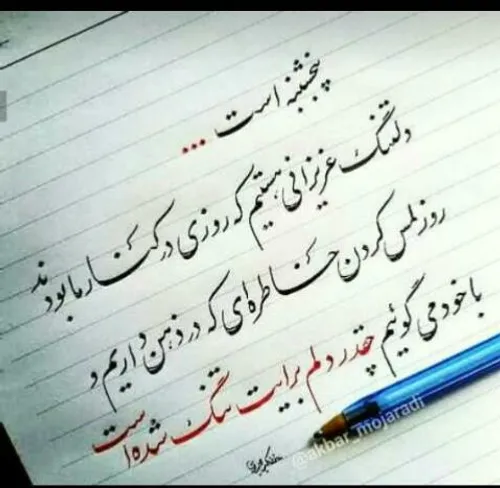 پنجشنبه است ...
دلتنگ عزیزانی هستیم که روزی در کنار ما بودند
روز لمس کردن خاطره‌ای که در ذهن داریم و
با خود می گوئیم چقدر دلم برایت تنگ شده است
@akbar_mojaradi